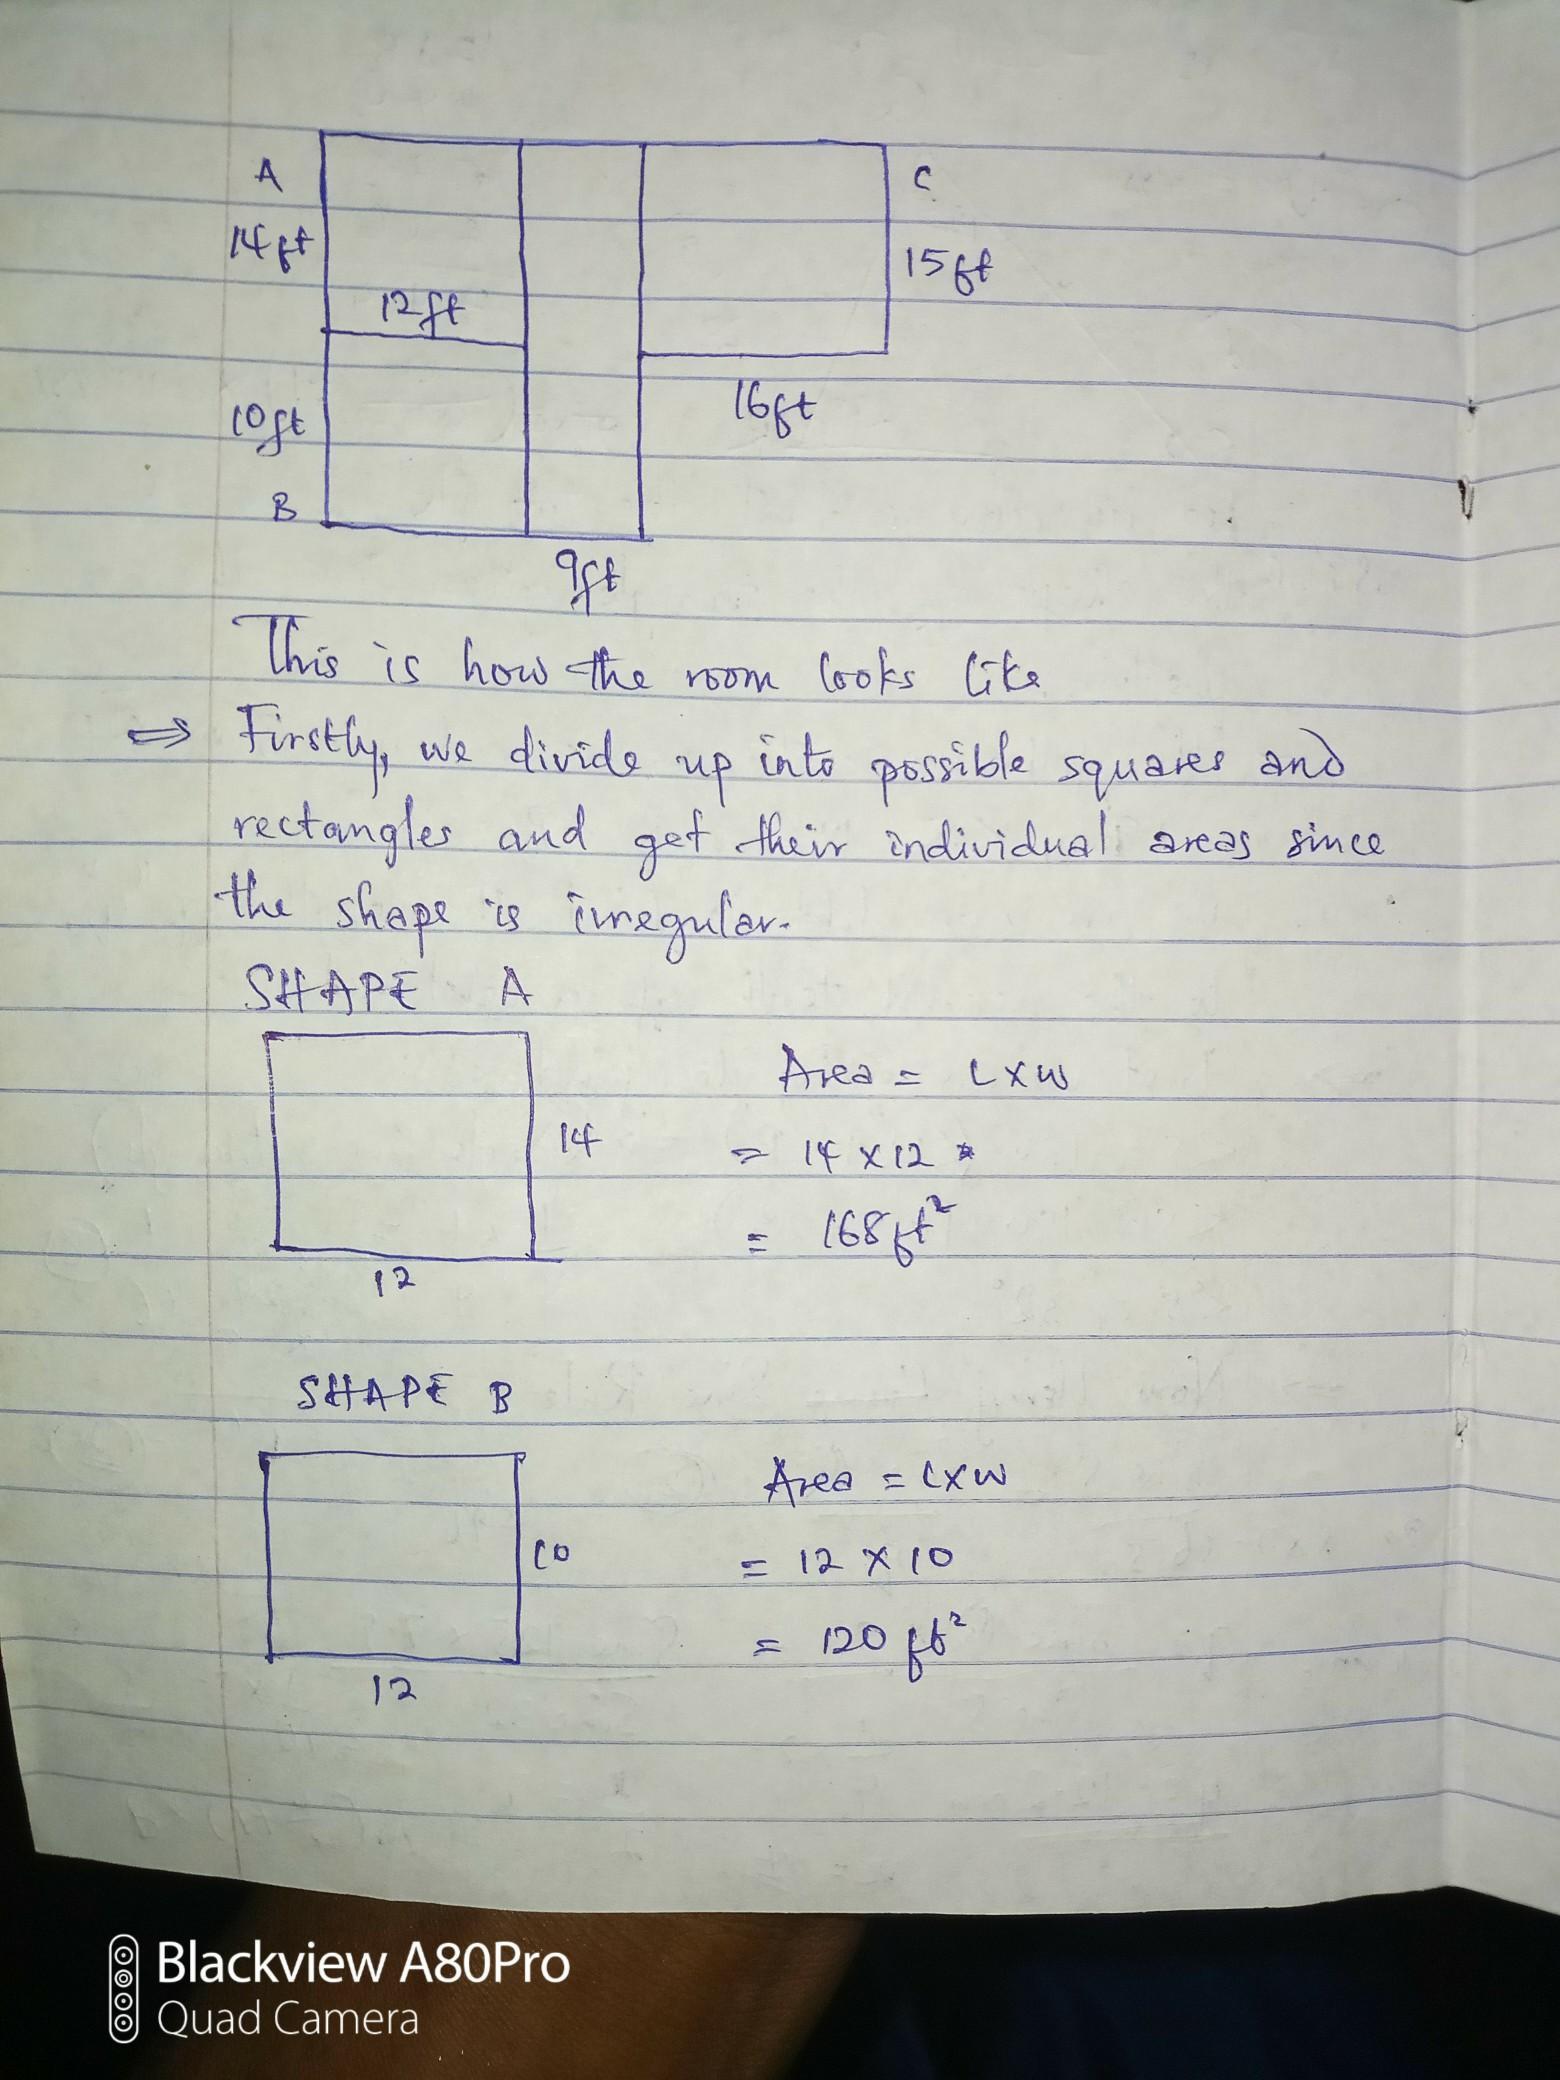 A
C
14ft
15ft
12ft
16ft
10ft
B
9ft
This is how the room looks like
⇒ Firstly, we divide up into possible squares and
rectangles and get their individual areas since
the shape is irregular.
SHAPE A
Area = L x w
14
= 14 x 12
= 168ft²
12
SHAPE B
Area = L x w
10
= 12 x 10
= 120 ft²
12
Blackview A80Pro
Quad Camera